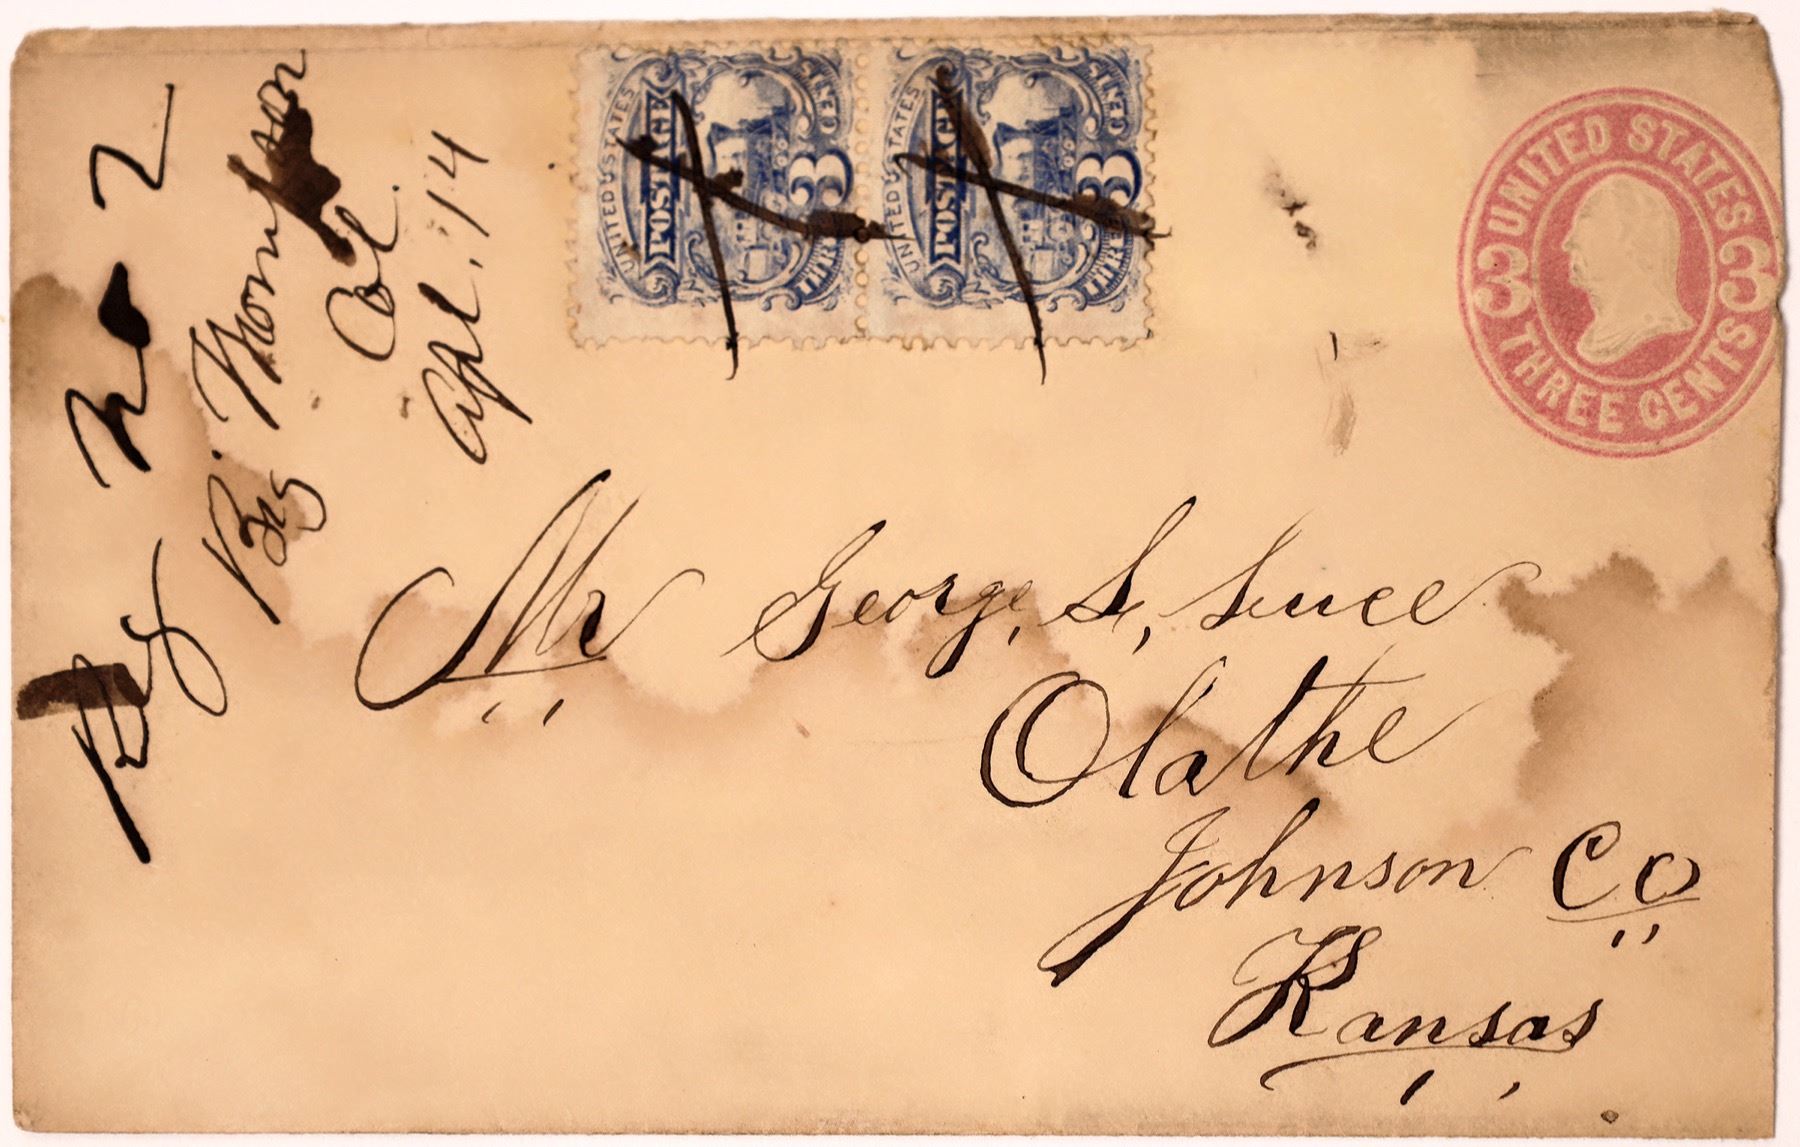 Reg No 2
Big Thompson
Col.
Apl. 14
UNITED STATES
POSTAGE
THREE CENTS
3
UNITED STATES
POSTAGE
THREE CENTS
3
UNITED STATES
3 3
THREE CENTS
Mr George, S, Luce
Olathe
Johnson Co
Kansas